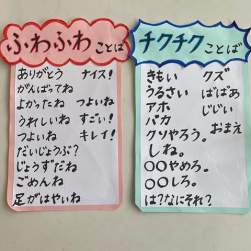 ふわふわことば
ありがとう ナイス!
がんばってね
よかったね つよいね
うれしいね すごい!
つよいね キレイ!
だいじょうぶ?
じょうずだね
ごめんね
足がはやいね
チクチクことば
きもい クズ
うるさい ばばあ
アホ じじい
バカ おまえ
クソやろう。
しね。
○○やめろ。
○○しろ。
は?なにそれ?